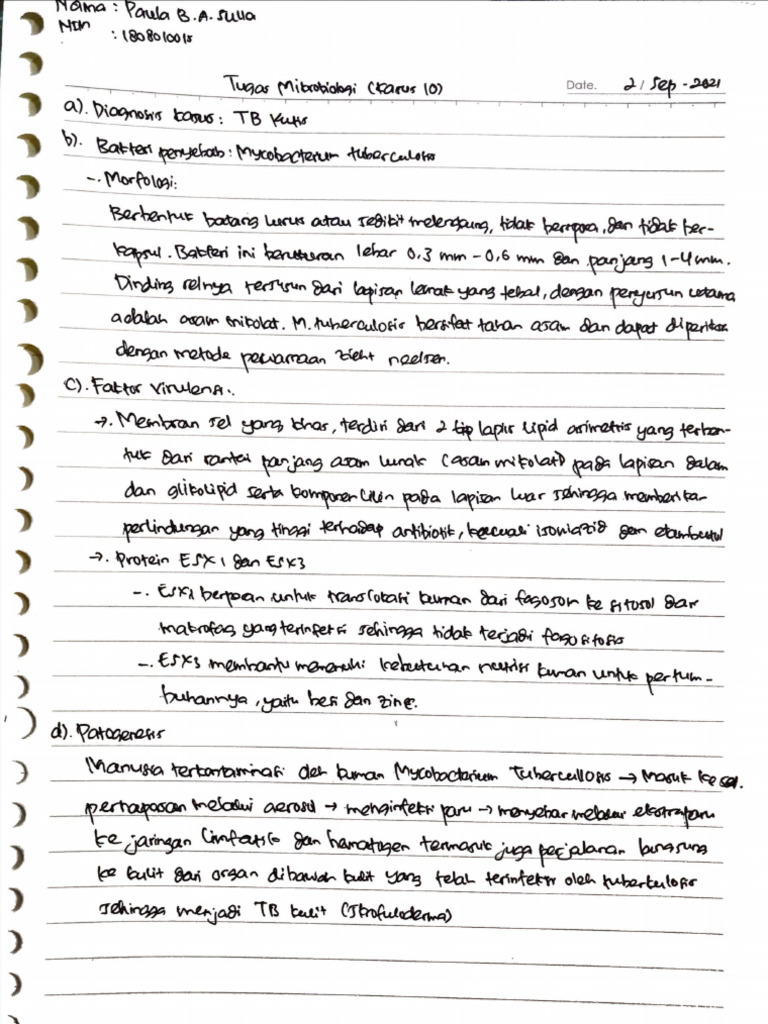 Nama : Paula B. A. Sulla
NIM : 1808010015
Tugas Mikrobiologi (Kasus 10)
Date. 2 / Sep - 2021
a). Diagnosis kasus : TB Kutis
b). Bakteri penyebab : Mycobacterium tuberculosis
- Morfologi :
Berbentuk batang lurus atau sedikit melengkung, tidak berspora, dan tidak ber-
kapsul. Bakteri ini berukuran lebar 0,3 mm - 0,6 mm dan panjang 1-4 mm.
Dinding selnya tersusun dari lapisan lemak yang tebal, dengan penyusun utama
adalah asam mikolat. M. tuberculosis bersifat tahan asam dan dapat diperiksa
dengan metode pewarnaan Zieht neelsen.
c). Faktor Virulensi.
→. Membran sel yang khas, terdiri dari 2 lapis lipid asimetris yang terben-
tuk dari rantai panjang asam lemak (asam mikolat) pada lapisan dalam
dan glikolipid serta komponen lilin pada lapisan luar sehingga memberika
perlindungan yang tinggi terhadap antibiotik, kecuali isoniazid dan etambutol
→. Protein ESX1 dan ESX3
-. ESX1 berperan untuk translokasi kuman dari fagosom ke sitosol dar
makrofag yang terinfeksi sehingga tidak terjadi fagositosis
-. ESX3 membantu memenuhi kebutuhan nutrisi kuman untuk pertum-
buhannya, yaitu besi dan zinc.
d). Patogenesis
Manusia terkontaminasi oleh kuman Mycobacterium Tuberculosis → Masuk ke sal.
pernapasan melalui aerosol → menginfeksi paru → menyebar melalui ekstraparu
ke jaringan limfatik dan hematogen termasuk juga perjalanan langsung
ke kulit dari organ dibawah kulit yang telah terinfeksi oleh tuberkulosis
sehingga menjadi TB kulit (Skrofuloderma)